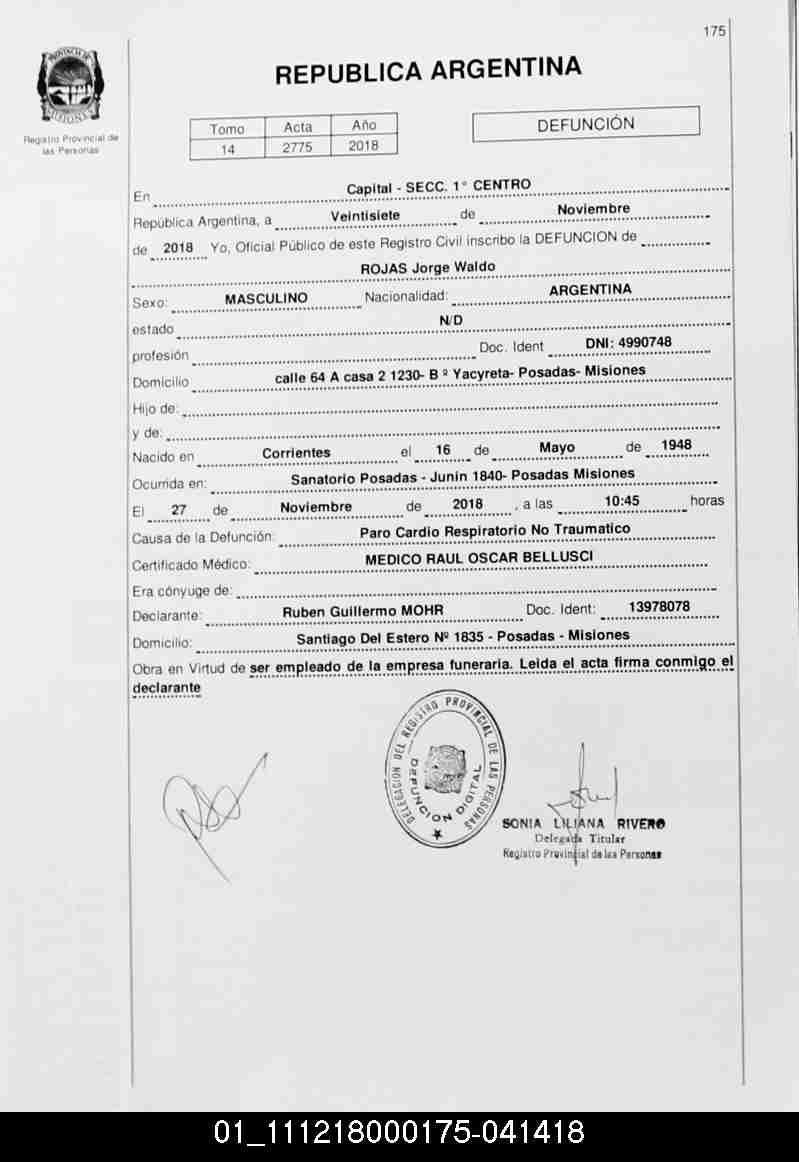 175
PROVINCIA DE
MISIONES
Registro Provincial de
las Personas
REPUBLICA ARGENTINA
Tomo Acta Año
14 2775 2018
DEFUNCIÓN
En Capital - SECC. 1° CENTRO
República Argentina, a Veintisiete de Noviembre
de 2018 Yo, Oficial Público de este Registro Civil inscribo la DEFUNCION de
ROJAS Jorge Waldo
Sexo: MASCULINO Nacionalidad: ARGENTINA
estado N/D
profesión Doc. Ident DNI: 4990748
Domicilio calle 64 A casa 2 1230- B º Yacyreta- Posadas- Misiones
Hijo de:
y de:
Nacido en Corrientes el 16 de Mayo de 1948
Ocurrida en: Sanatorio Posadas - Junin 1840- Posadas Misiones
El 27 de Noviembre de 2018 , a las 10:45 horas
Causa de la Defunción: Paro Cardio Respiratorio No Traumatico
Certificado Médico: MEDICO RAUL OSCAR BELLUSCI
Era cónyuge de:
Declarante: Ruben Guillermo MOHR Doc. Ident: 13978078
Domicilio: Santiago Del Estero Nº 1835 - Posadas - Misiones
Obra en Virtud de ser empleado de la empresa funeraria. Leida el acta firma conmigo el
declarante
DELEGACION DEL REGISTRO PROVINCIAL DE LAS PERSONAS
DEFUNCION DIGITAL
SONIA LILIANA RIVERO
Delegada Titular
Registro Provincial de las Personas
01_111218000175-041418